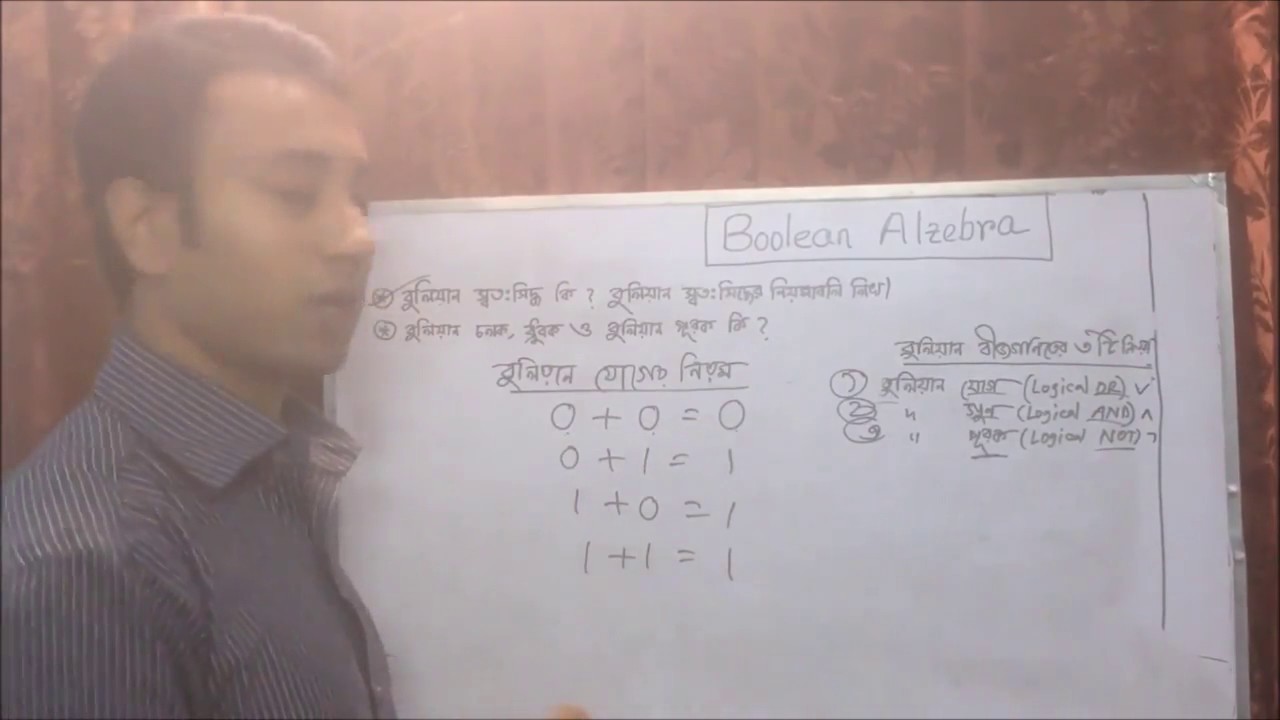 Boolean Alzebra
বুলিয়ান স্বত:সিদ্ধ কি ? বুলিয়ান স্বত:সিদ্ধের নিয়মাবলি লিখ।
বুলিয়ান চলক, ধ্রুবক ও বুলিয়ান পূরক কি ?
বুলিয়ান যোগের নিয়ম
0 + 0 = 0
0 + 1 = 1
1 + 0 = 1
1 + 1 = 1
বুলিয়ান বীজগনিতের ৩ টি ক্রিয়া
১ বুলিয়ান যোগ (Logical OR) ∨
২ " গুণ (Logical AND) ∧
৩ " পূরক (Logical NOT) ¬